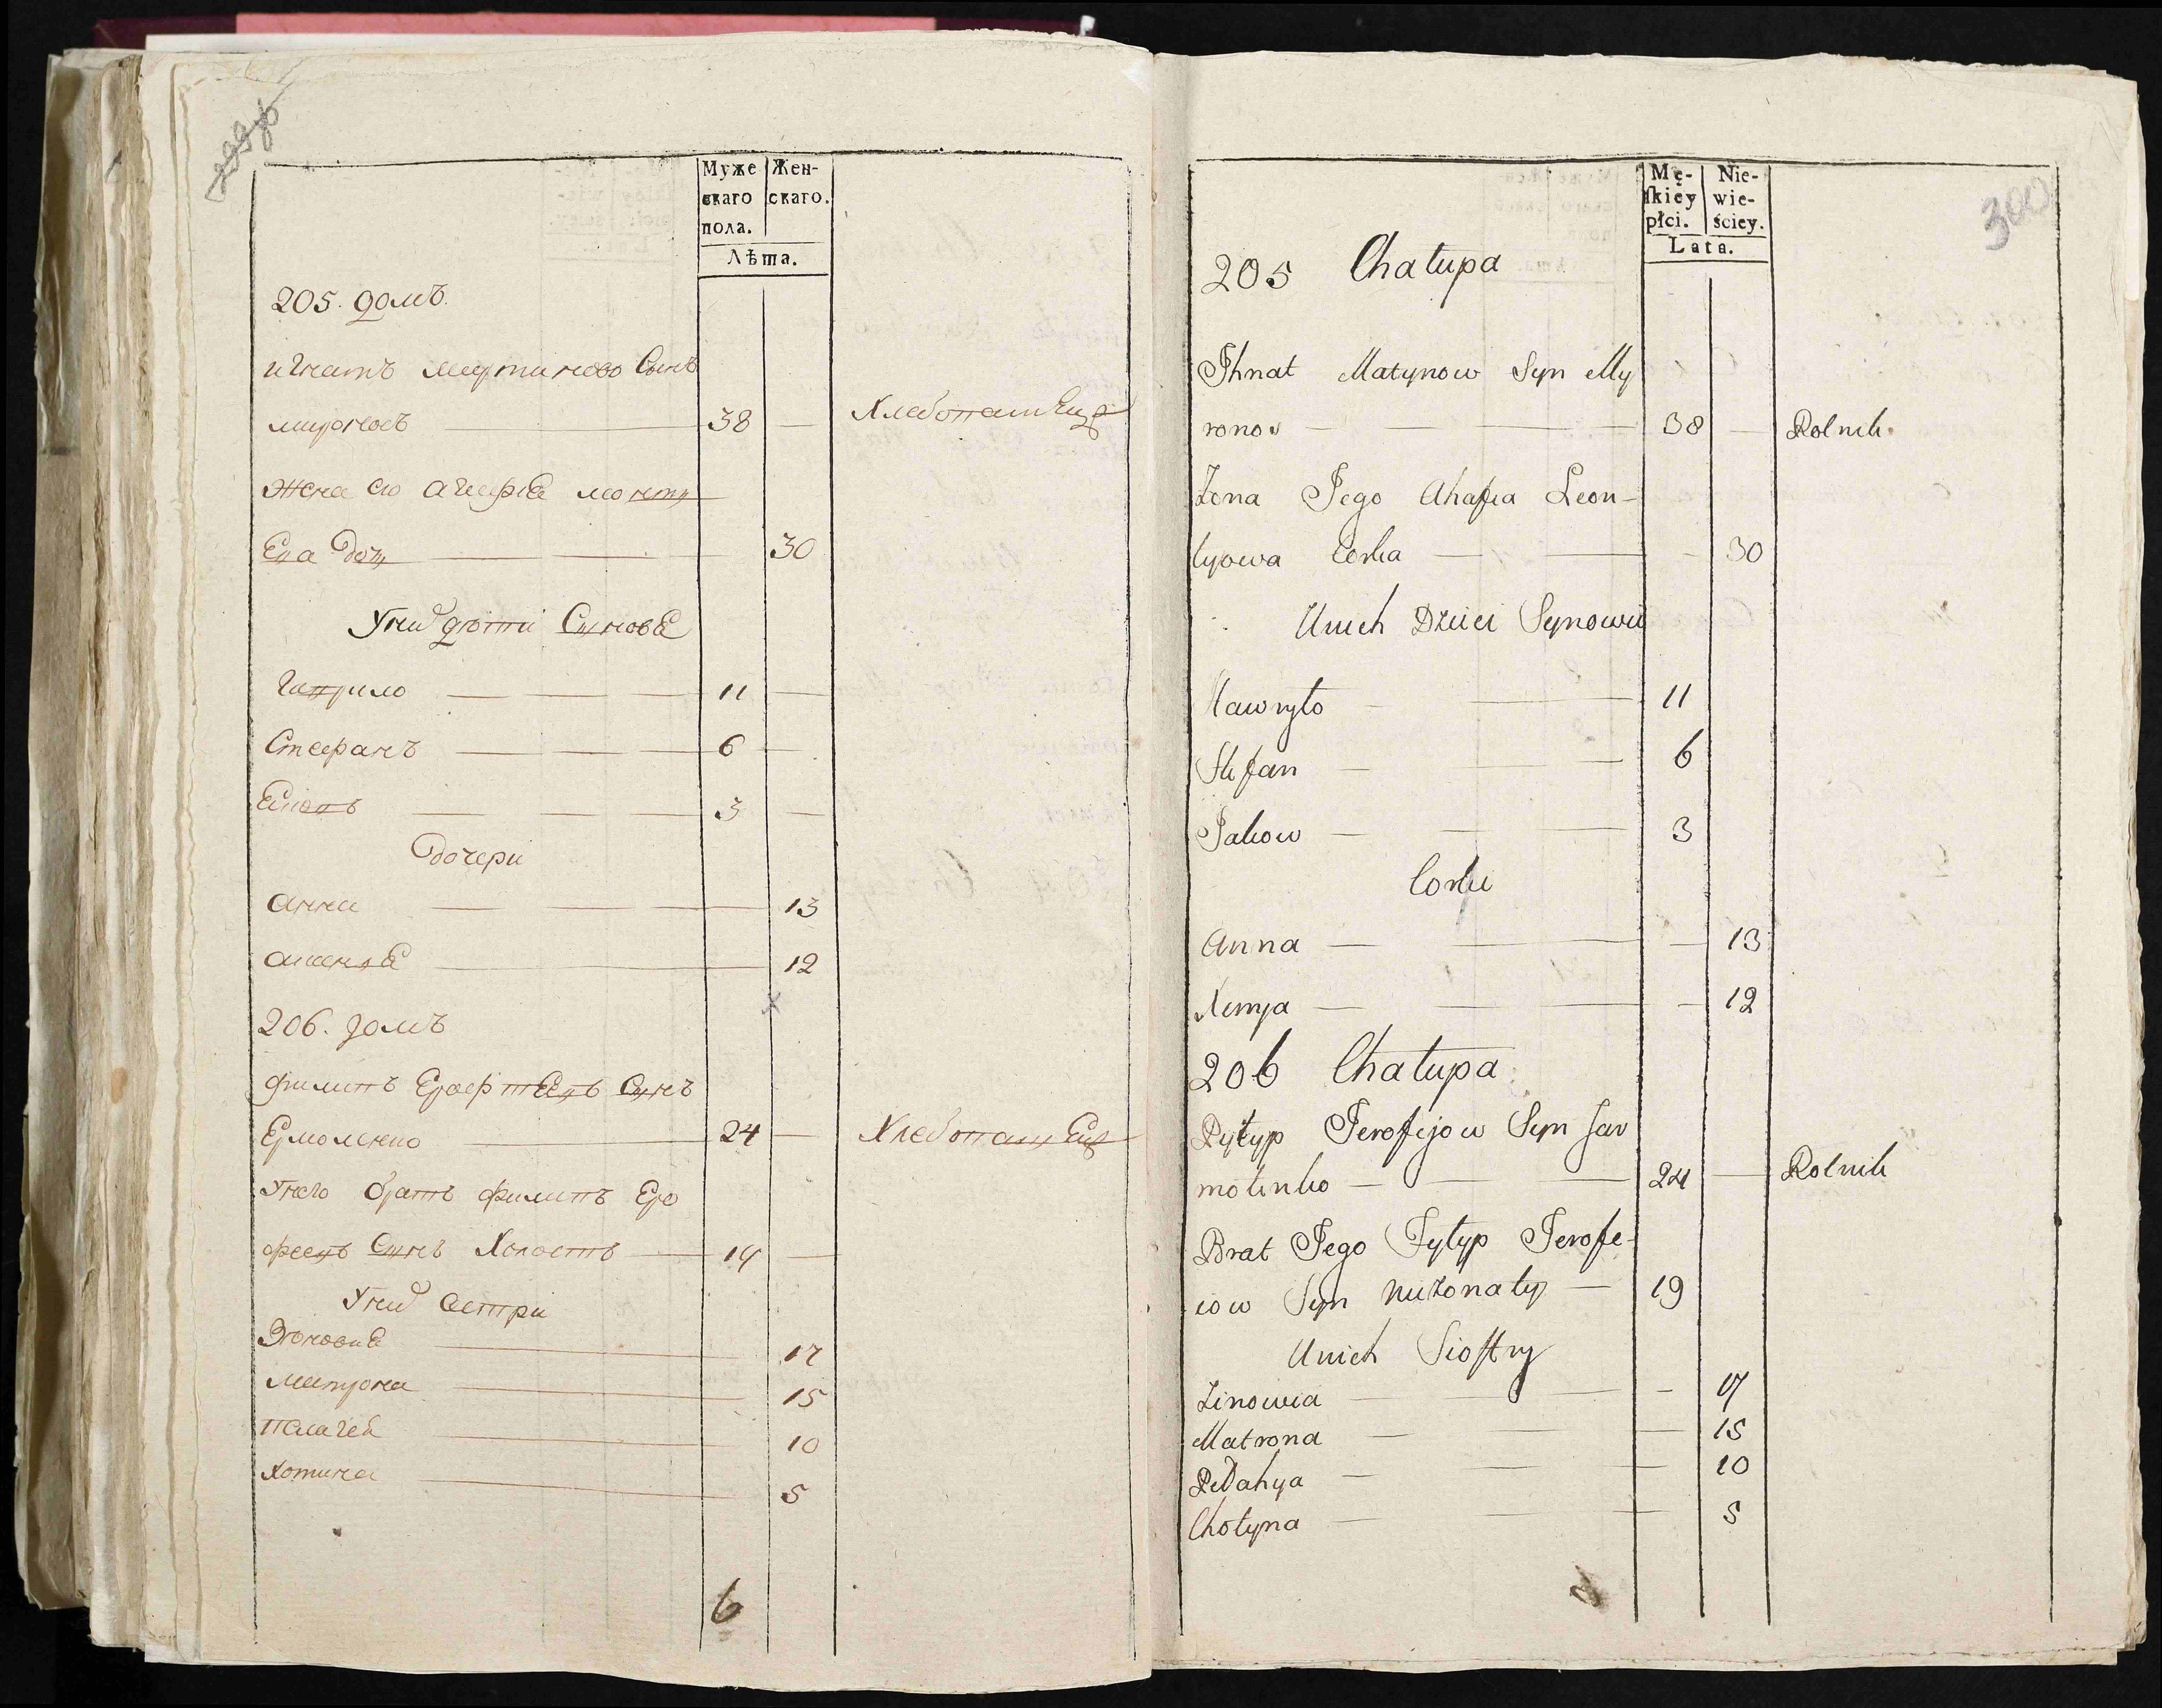 Муже
скаго
пола.
Жен-
скаго.
Лѣта.
205. домъ.
игнатъ мартиново Сынъ
мироновъ 38 — Хлебопашецъ
жена его агафіа леонти
Ева доч 30
Уних дѣти Синовѣ
гаврило 11 —
Стефанъ 6 —
3 —
дочери
анна 13
12
206. домъ
филипъ Ерофтеевъ Синъ
Ермоленко 24 — Хлебопашецъ
Унего братъ филипъ Еро
феевъ Синъ Холостъ 19 —
Уних Сестри
Зѣновиа 17
матрона 15
Палагеа 10
хотина 5
6
300
Mę-
ſkiey
płci.
Nie-
wie-
ściey.
Lata.
205 Chałupa
Ihnat Matynow Syn My
ronow — 38 — Rolnik
Żona Jego Ahafia Leon-
tyowa Corka — 30
Unich Dzieci Synowie
Hawryło — 11
Stefan — 6
Jakow — 3
Corki
Anna — 13
Xenya — 12
206 Chałupa
Pyłyp Jerofijow Syn Jar
molenko — 24 — Rolnik
Brat Jego Fyłyp Jerofe-
iow Syn nieżonaty — 19
Unich Siostry
Zinowia — 17
Matrona — 15
Pełahya — 10
Chotyna — 5